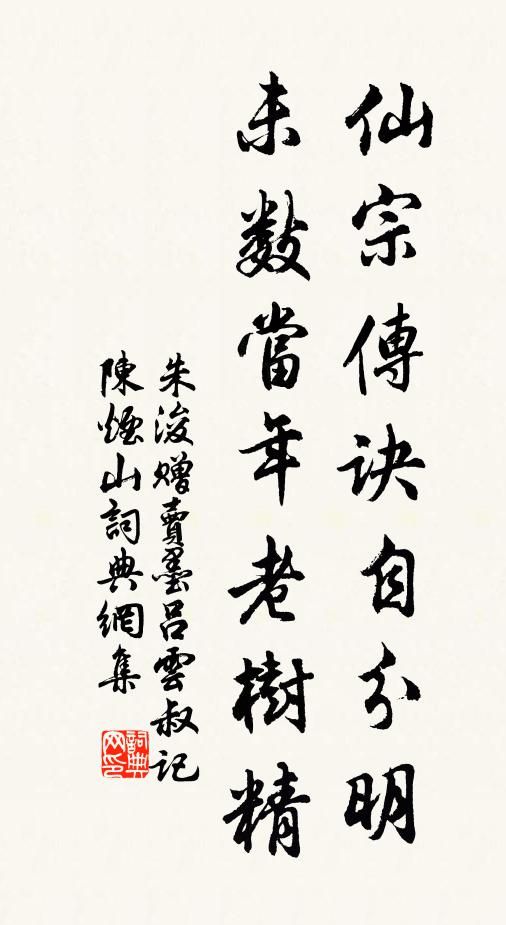 仙宗傳訣自分明
未數當年老樹精
朱浚贈賣墨呂雲叔記
陳煙山詞典網集
詞典网印